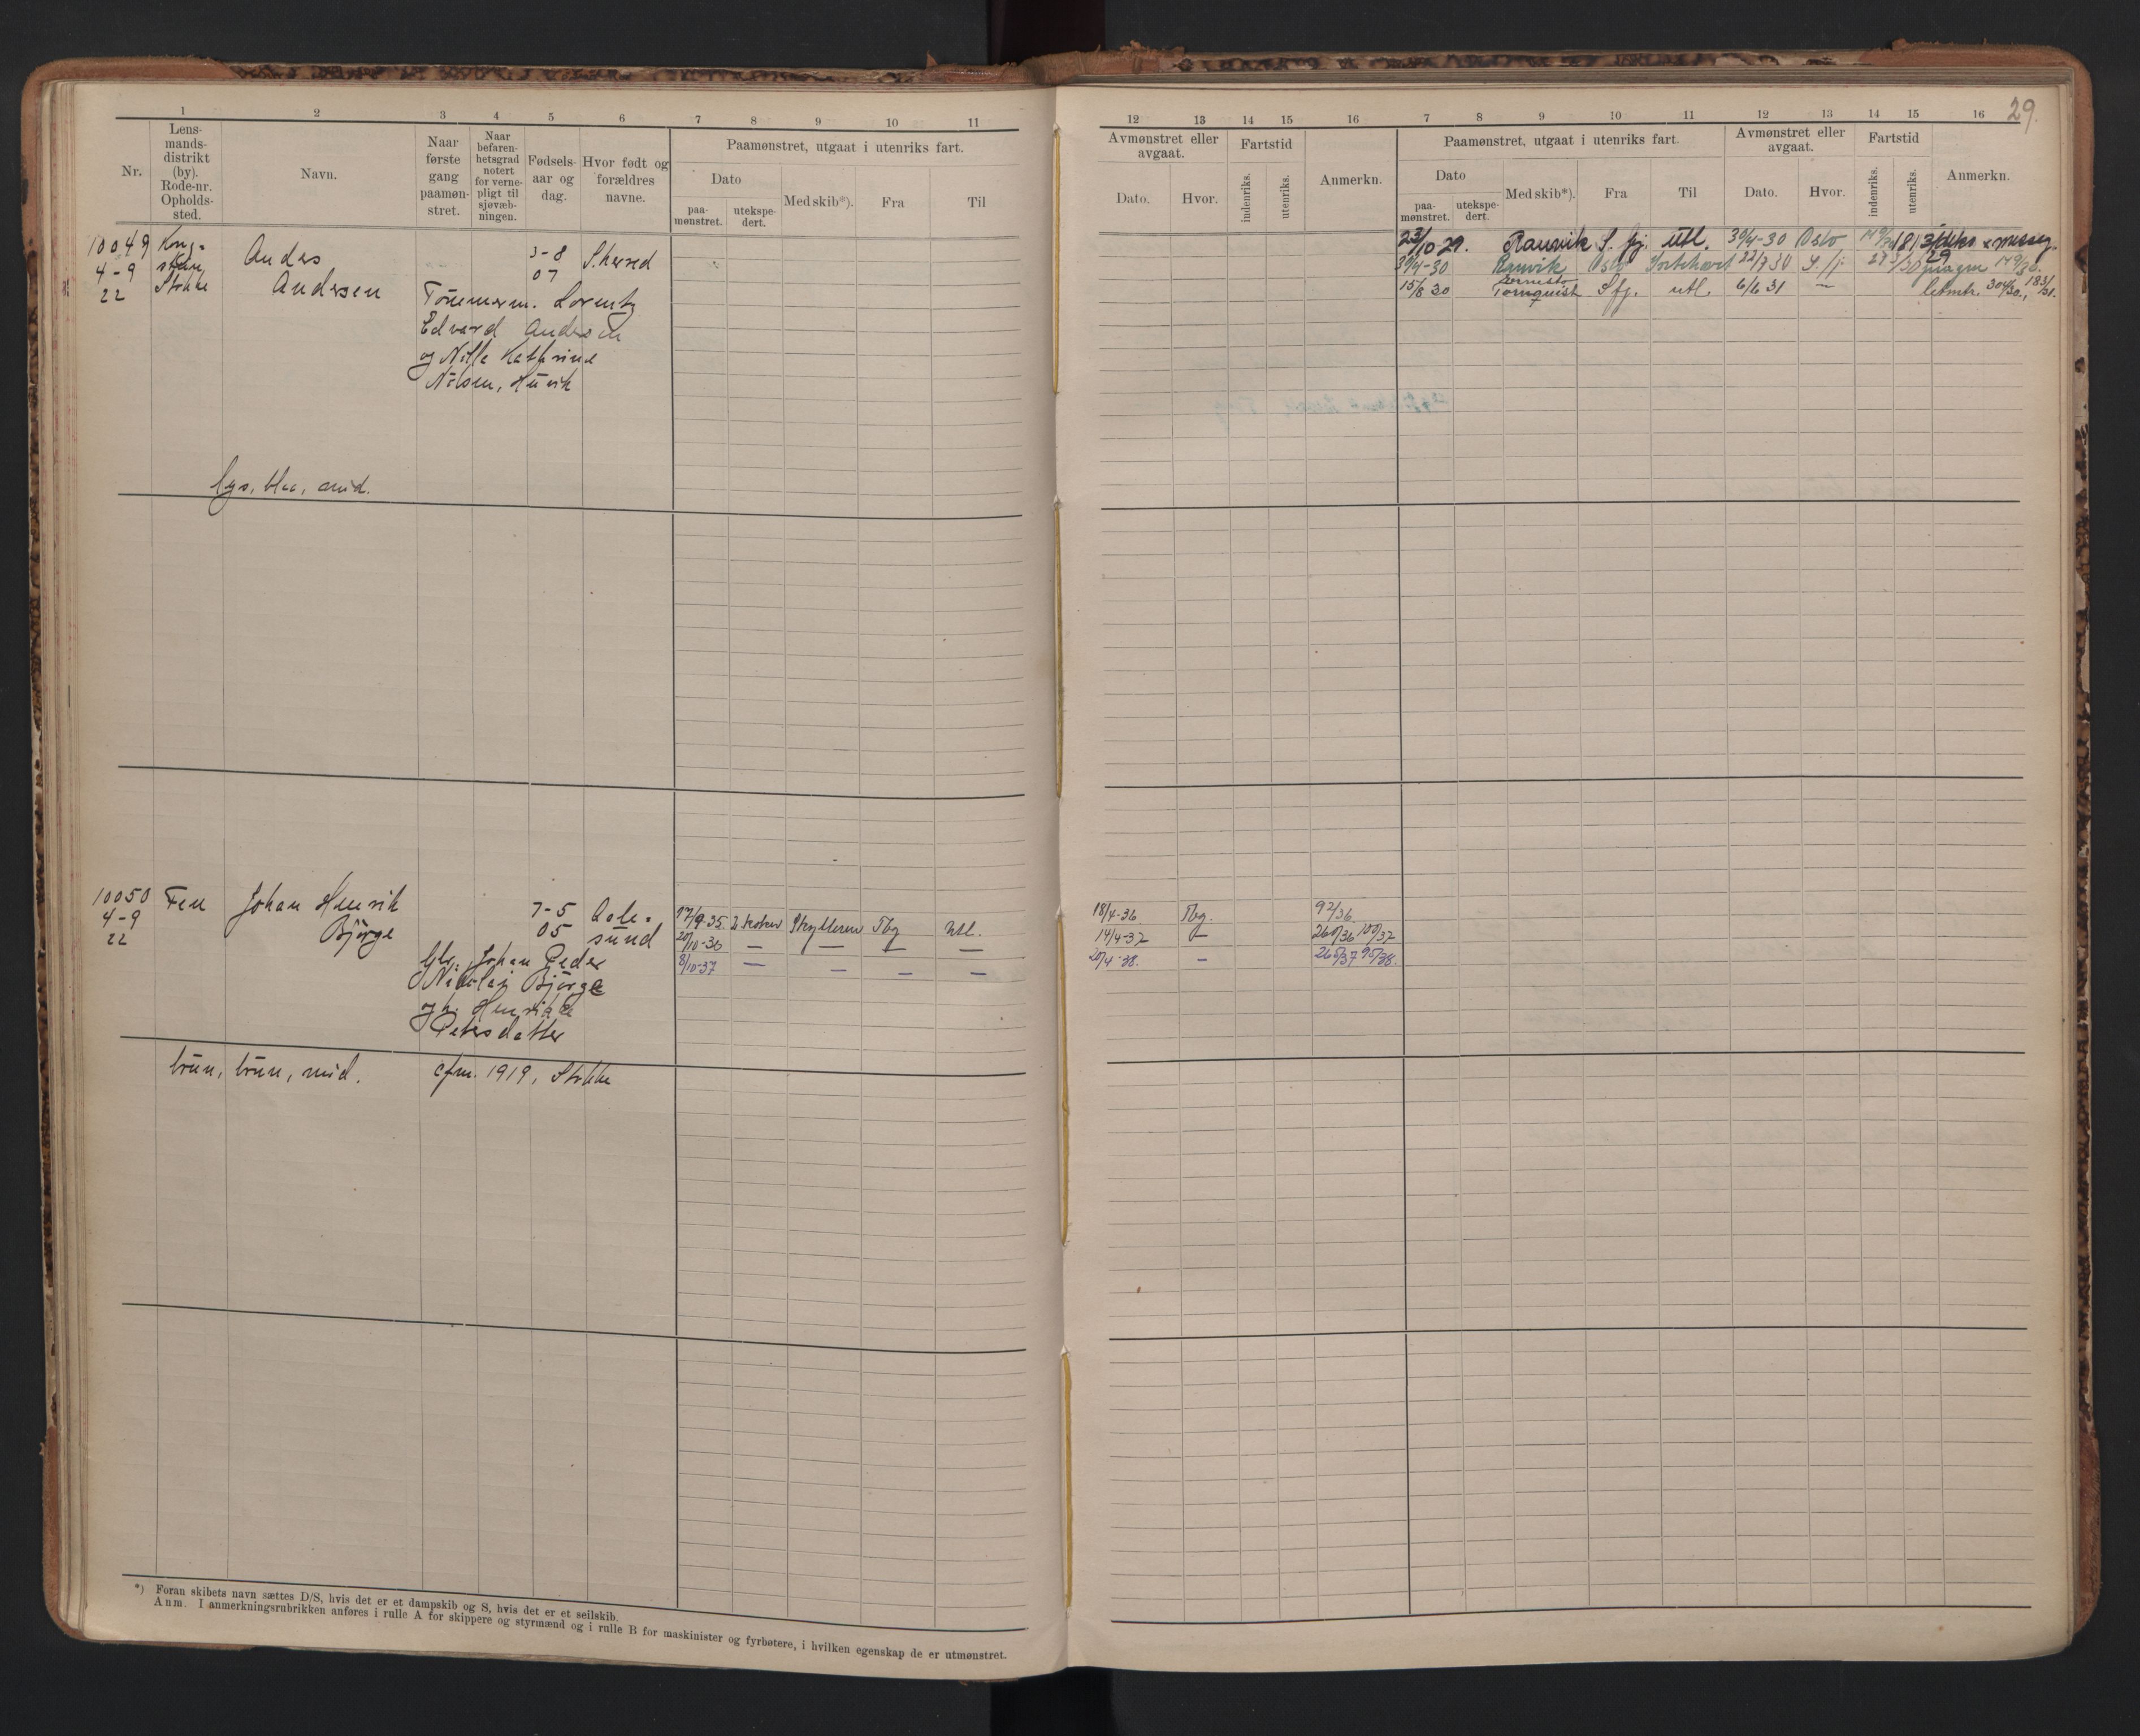 29.
1 2 3 4 5 6 7 8 9 10 11
Nr.
Lens-
mands-
distrikt
(by).
Rode-nr.
Opholds-
sted.
Navn.
Naar
første
gang
paamøn-
stret.
Naar
befaren-
hetsgrad
notert
for verne-
pligt til
sjøvæb-
ningen.
Fødsels-
aar og
dag.
Hvor født og
forældres
navne.
Paamønstret, utgaat i utenriks fart.
Dato
paa-
mønstret.
utekspe-
dert.
Med skib*).
Fra
Til
10049
4-9
22
Stokke
Anders
Andersen
3-8
07
S.herred
Tömmerm. Lorentz
Edvard Andersen
og Nille Kathrine
Nilsen, Husvik
lys, blaa, mid.
10050
4-9
22
Fen
Johan Henrik
Björge
7-5
05
Aale-
sund
Johan Peder
Nikolai Björge
og h. Henrikke
Petersdatter
17/9-35 Skytteren Tbg Utl.
20/10-36 — — — —
8/10-37 — — — —
brun, brun, mid. cfm. 1919, Stokke
*) Foran skibets navn sættes D/S, hvis det er et dampskib og S, hvis det er et seilskib.
Anm. I anmerkningsrubrikken anføres i rulle A for skippere og styrmænd og i rulle B for maskinister og fyrbøtere, i hvilken egenskap de er utmønstret.
12 13 14 15 16 7 8 9 10 11 12 13 14 15 16
Avmønstret eller
avgaat.
Dato.
Hvor.
Fartstid
indenriks.
utenriks.
Anmerkn.
Paamønstret, utgaat i utenriks fart.
Dato
paa-
mønstret.
utekspe-
dert.
Med skib*).
Fra
Til
Avmønstret eller
avgaat.
Dato.
Hvor.
Fartstid
indenriks.
utenriks.
Anmerkn.
23/10 29. Ranvik S. fj. utl. 30/4-30 Oslo
30/4-30 Ranvik Oslo 22/7 30 S. fj.
15/8 30 Tornquist S fj. utl. 6/6 31 — 304/30, 183/31.
18/4-36 Tbg. 92/36
14/4-37 — 260/36 100/37
20/4-38. — 265/37 95/38.